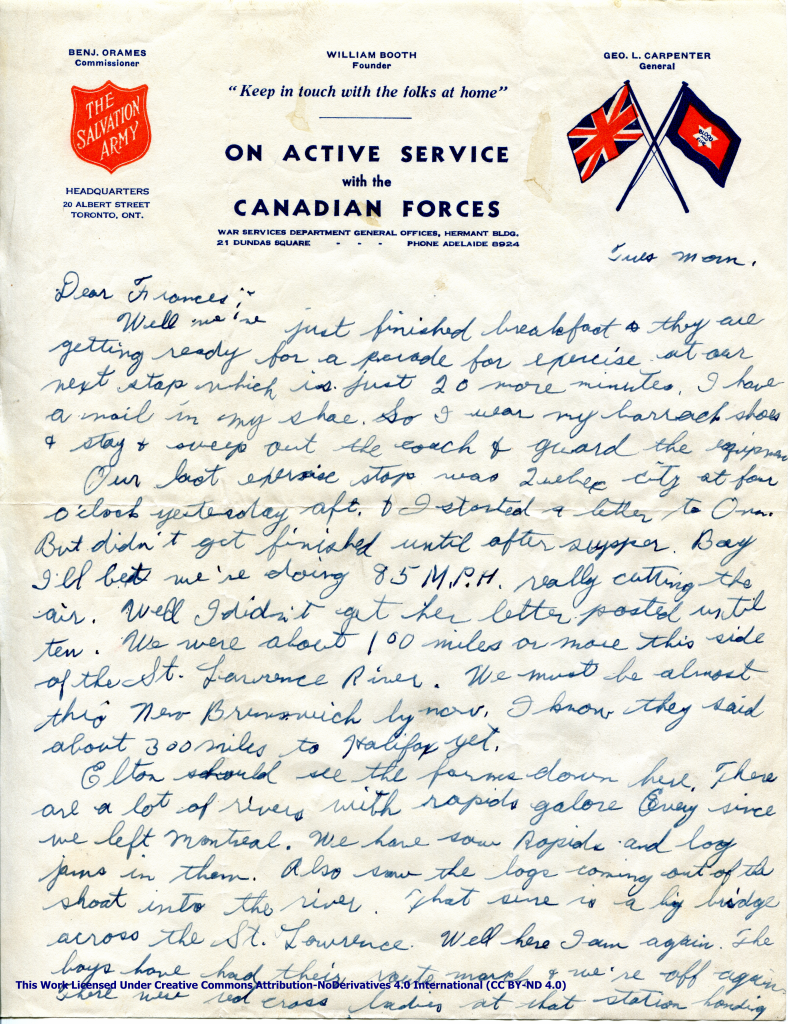 BENJ. ORAMES
Commissioner
WILLIAM BOOTH
Founder
GEO. L. CARPENTER
General
"Keep in touch with the folks at home"
THE
SALVATION
ARMY
BLOOD
AND
FIRE
ON ACTIVE SERVICE
with the
CANADIAN FORCES
HEADQUARTERS
20 ALBERT STREET
TORONTO, ONT.
WAR SERVICES DEPARTMENT GENERAL OFFICES, HERMANT BLDG.
21 DUNDAS SQUARE - - - PHONE ADELAIDE 8924
Tues morn.
Dear Frances;-
Well we've just finished breakfast & they are
getting ready for a parade for exercise at our
next stop which is just 20 more minutes. I have
a nail in my shoe. So I wear my barrack shoes
& stay & sweep out the coach & guard the
Our last exercise stop was Quebec city at four
o'clock yesterday aft. & I started a letter to
But didn't get finished until after supper. Boy
I'll bet we're doing 85 M.P.H. really cutting the
air. Well I didn't get her letter posted until
ten. We were about 100 miles or more this side
of the St. Lawrence River. We must be almost
thro New Brunswich by now. I know they said
about 300 miles to Halifax yet.
Elton should see the farms down here. There
are a lot of rivers with rapids galore Every since
we left Montreal. We have saw Rapids and log
jams in them. Also saw the logs coming out of the
shoat into the river. That sure is a big bridge
across the St. Lawrence. Well here I am again. The
boys have had their route march & we're off again
There were red cross ladies at that station handing
This Work Licensed Under Creative Commons Attribution-NoDerivatives 4.0 International (CC BY-ND 4.0)